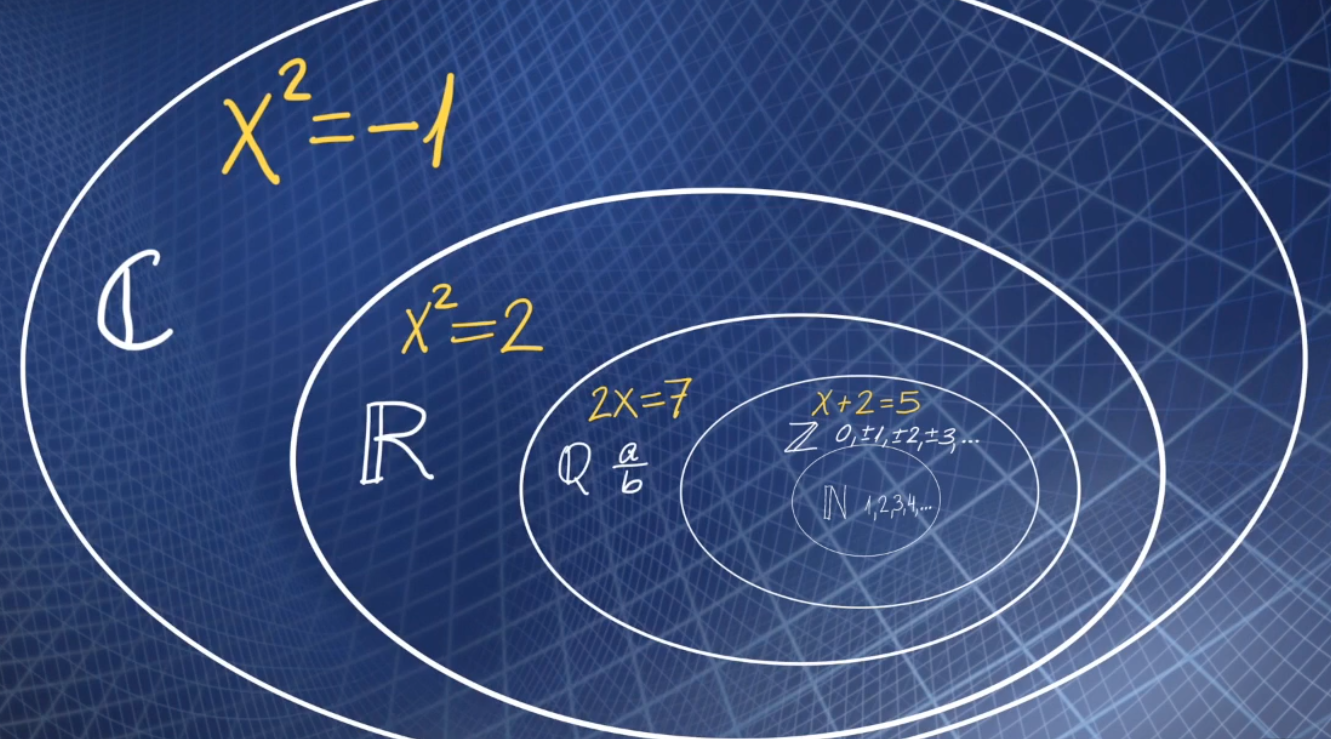 X²=-1
ℂ
x²=2
ℝ
2x=7
ℚ a/b
x+2=5
ℤ 0,±1,±2,±3,...
ℕ 1,2,3,4,...